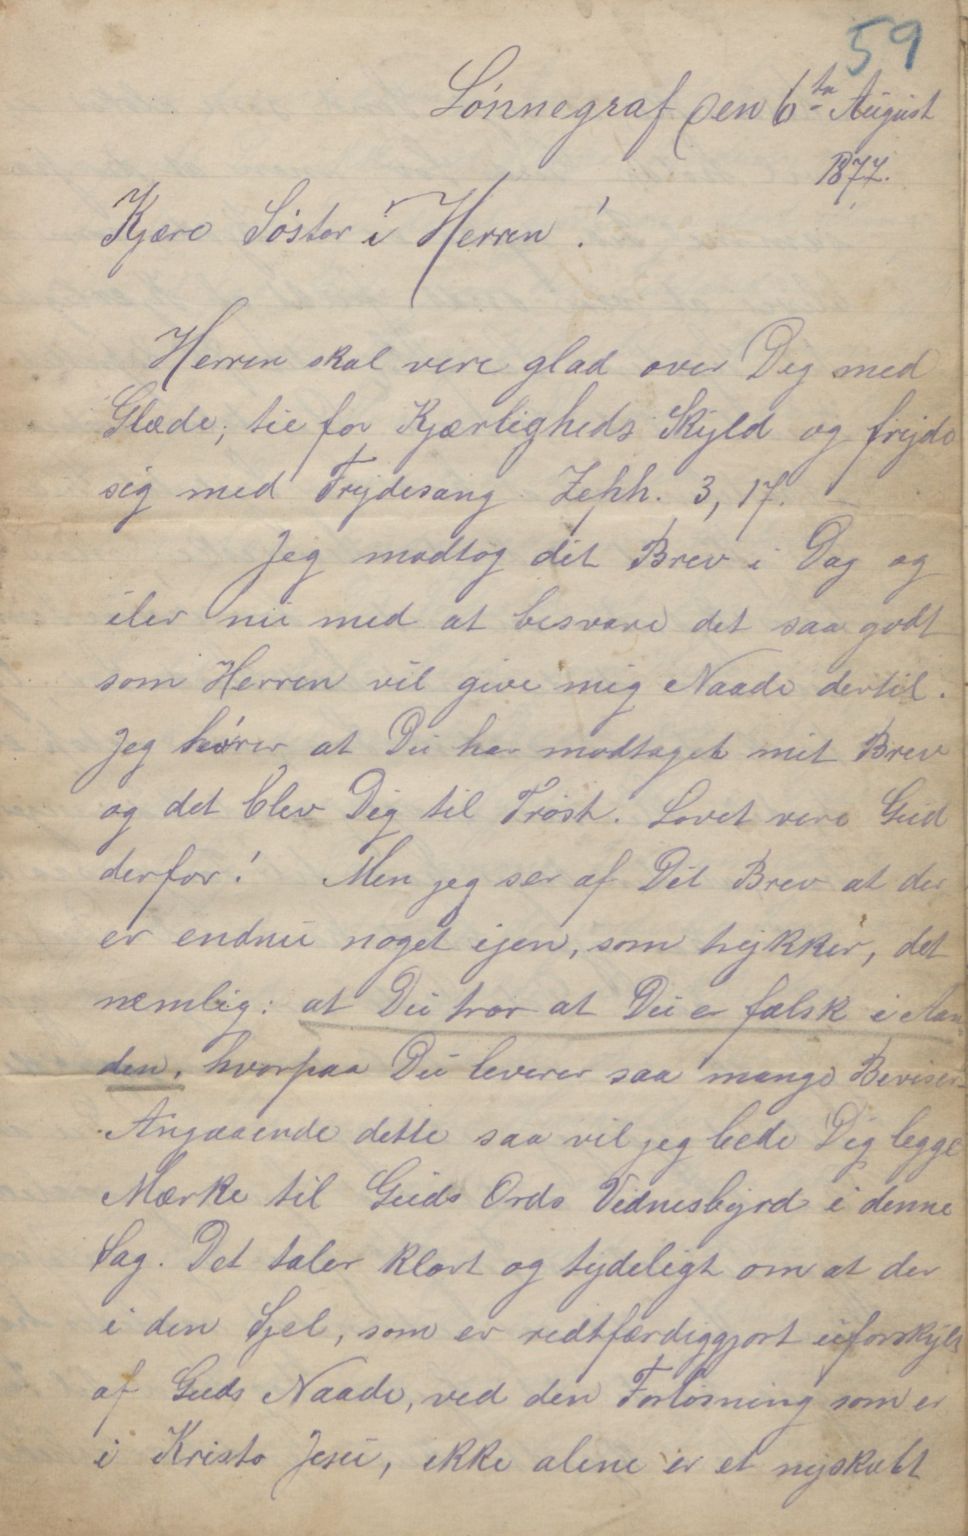 59
Lønnegraf den 6te August
1877.
Kjære Søster i Herren!
Herren skal være glad over Dig med
Glæde; tie for Kjærligheds Skyld og fryde
sig med Frydesang. Zeph. 3, 17. —
Jeg modtog dit Brev i Dag og
iler nu med at besvare det saa godt
som Herren vil give mig Naade dertil.
Jeg hører at Du har modtaget mit Brev
og det blev Dig til Trøst. Lovet være Gud
derfor! Men jeg ser af Dit Brev at der
er endnu noget igen, som trykker, det
nemlig: at Du tror at Du er falsk i Aan
den, hvorpaa Du leverer saa mange Beviser
Angaaende dette saa vil jeg bede Dig legge
Mærke til Guds Ords Vidnesbyrd i denne
Sag. Det taler klart og tydeligt om at der
i den Sjel, som er retfærdiggjort uforskyldt
af Guds Naade, ved den Forløsning som er
i Kristo Jesu, ikke alene er et nyskabt